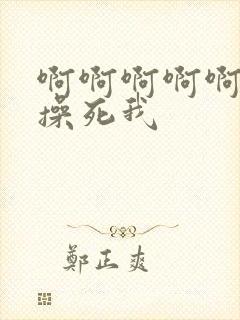 啊啊啊啊啊
操死我
鄭正爽